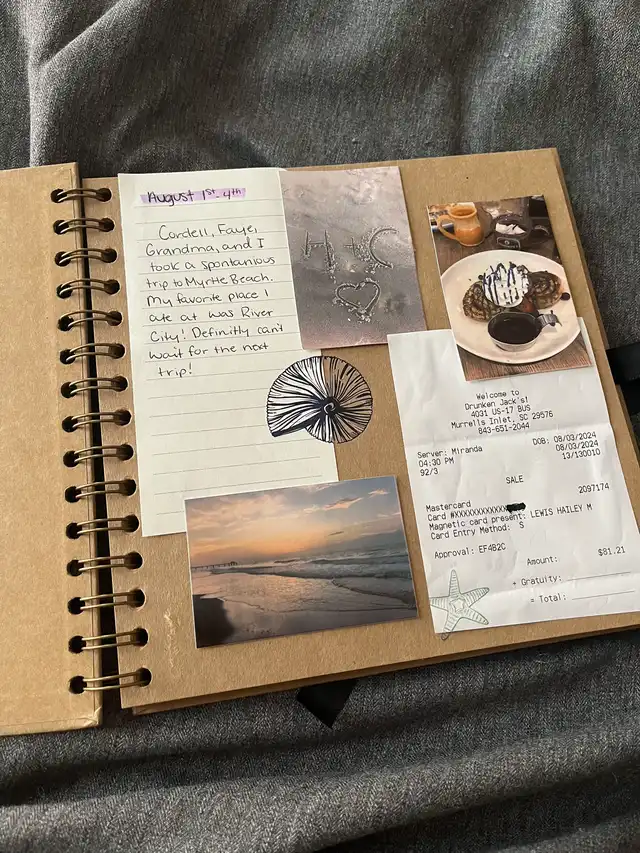 August 1st - 4th
Cordell, Faye,
Grandma, and I
took a spontanious
trip to Myrtle Beach.
My favorite place I
ate at was River
City! Definitly can't
wait for the next
trip!
H + C
Welcome to
Drunken Jack's!
4031 US-17 BUS
Murrells Inlet, SC 29576
843-651-2044
Server: Miranda DOB: 08/03/2024
04:30 PM 08/03/2024
92/3 13/130010
SALE
2097174
Mastercard
Card #XXXXXXXXXXXX
Magnetic card present: LEWIS HAILEY M
Card Entry Method: S
Approval: EF4B2C
Amount: $81.21
+ Gratuity:
= Total: